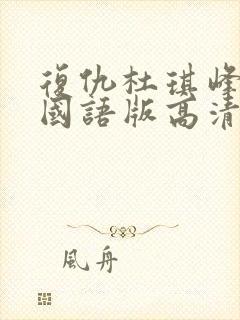 復仇杜琪峰
國語版高清
風舟